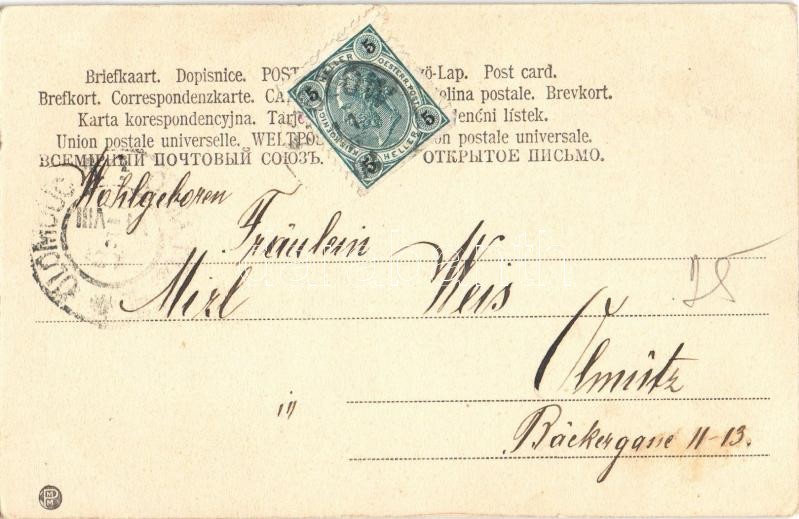 Briefkaart. Dopisnice. POST ö-Lap. Post card.
Brefkort. Correspondenzkarte. CA elina postale. Brevkort.
Karta korespondencyjna. Tarj denčni lístek.
Union postale universelle. WELTPOS on postale universale.
ВСЕМІРНЫЙ ПОЧТОВЫЙ СОЮЗЪ. ОТКРЫТОЕ ПИСЬМО.
5 HELLER 5
OESTERR. POST
5 HELLER 5
OLOMOUC
VIII
Wohlgeboren
Fräulein
Mizl Weis
25
in Olmütz
Bäckergasse 11-13.